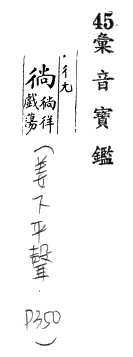 45彙音寶鑑
·彳冘
徜
徜徉
戲蕩
(姜下平聲. P350)